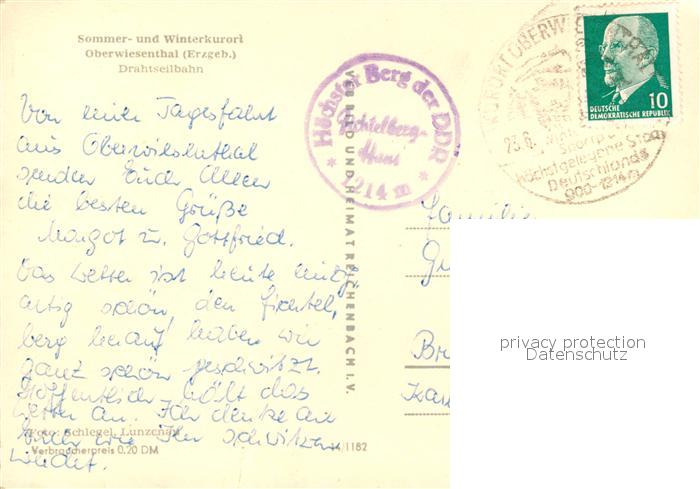 Sommer- und Winterkurort
Oberwiesenthal (Erzgeb.)
Drahtseilbahn
Von einer Tagesfahrt
aus Oberwiesenthal
senden Euch Allen
die besten Grüße
Margot u. Gottfried.
Das Wetter ist heute einzig
artig schön, den Fichtel,
berg herauf haben wir
ganz schön geschwitzt.
Hoffentlich hält das
Wetter an. Ich denke an
Euch wie Ihr schwitzen
werdet.
Foto: Schlegel, Lunzenau
Verbraucherpreis 0,20 DM
14/1182
VEB BILD UND HEIMAT REICHENBACH I. V.
Höchster Berg der DDR
Fichtelberg-
Haus
1214 m
KURORT OBERW
23.6.
Höchstgelegene Stadt
Deutschlands
900-1214 m
DEUTSCHE
DEMOKRATISCHE REPUBLIK
10
Familie
Gr
Br
Kar
privacy protection
Datenschutz